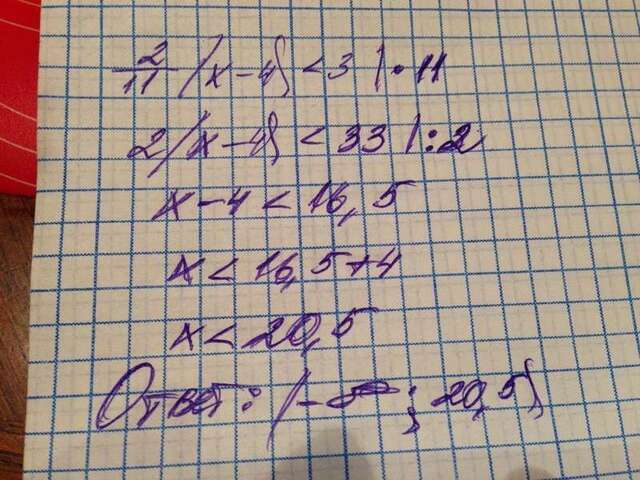 2/11 (x-4) < 3 | • 11
2(x-4) < 33 | : 2
x-4 < 16,5
x < 16,5+4
x < 20,5
Ответ: (-∞; 20,5)